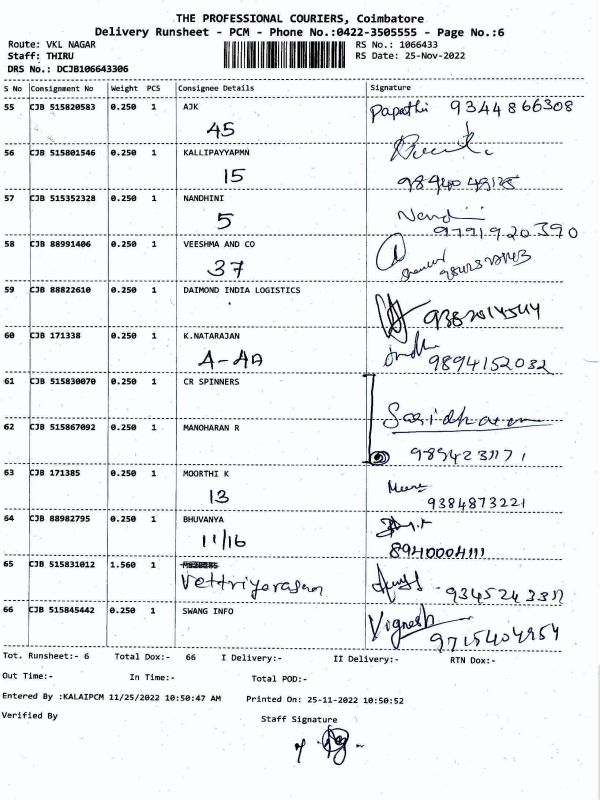 THE PROFESSIONAL COURIERS, Coimbatore
Delivery Runsheet - PCM - Phone No.:0422-3505555 - Page No.:6
Route: VKL NAGAR RS No.: 1066433
Staff: THIRU RS Date: 25-Nov-2022
DRS No.: DCJB106643306
S No Consignment No Weight PCS Consignee Details Signature
55 CJB 515820583 0.250 1 AJK Papathi 9344866308
45
56 CJB 515801546 0.250 1 KALLIPAYYAPMN
15
57 CJB 515352328 0.250 1 NANDHINI
5 9791920390
58 CJB 88991406 0.250 1 VEESHMA AND CO
37
59 CJB 88822610 0.250 1 DAIMOND INDIA LOGISTICS
60 CJB 171338 0.250 1 K.NATARAJAN
A-4A 9894152032
61 CJB 515830070 0.250 1 CR SPINNERS
Sasidharan
62 CJB 515867092 0.250 1 MANOHARAN R
63 CJB 171385 0.250 1 MOORTHI K
13 9384873221
64 CJB 88982795 0.250 1 BHUVANYA
11/16 8940004111
65 CJB 515831012 1.560 1
Vettriyarasan
66 CJB 515845442 0.250 1 SWANG INFO Vignesh
9715404954
Tot. Runsheet:- 6 Total Dox:- 66 I Delivery:- II Delivery:- RTN Dox:-
Out Time:- In Time:- Total POD:-
Entered By :KALAIPCM 11/25/2022 10:50:47 AM Printed On: 25-11-2022 10:50:52
Verified By Staff Signature